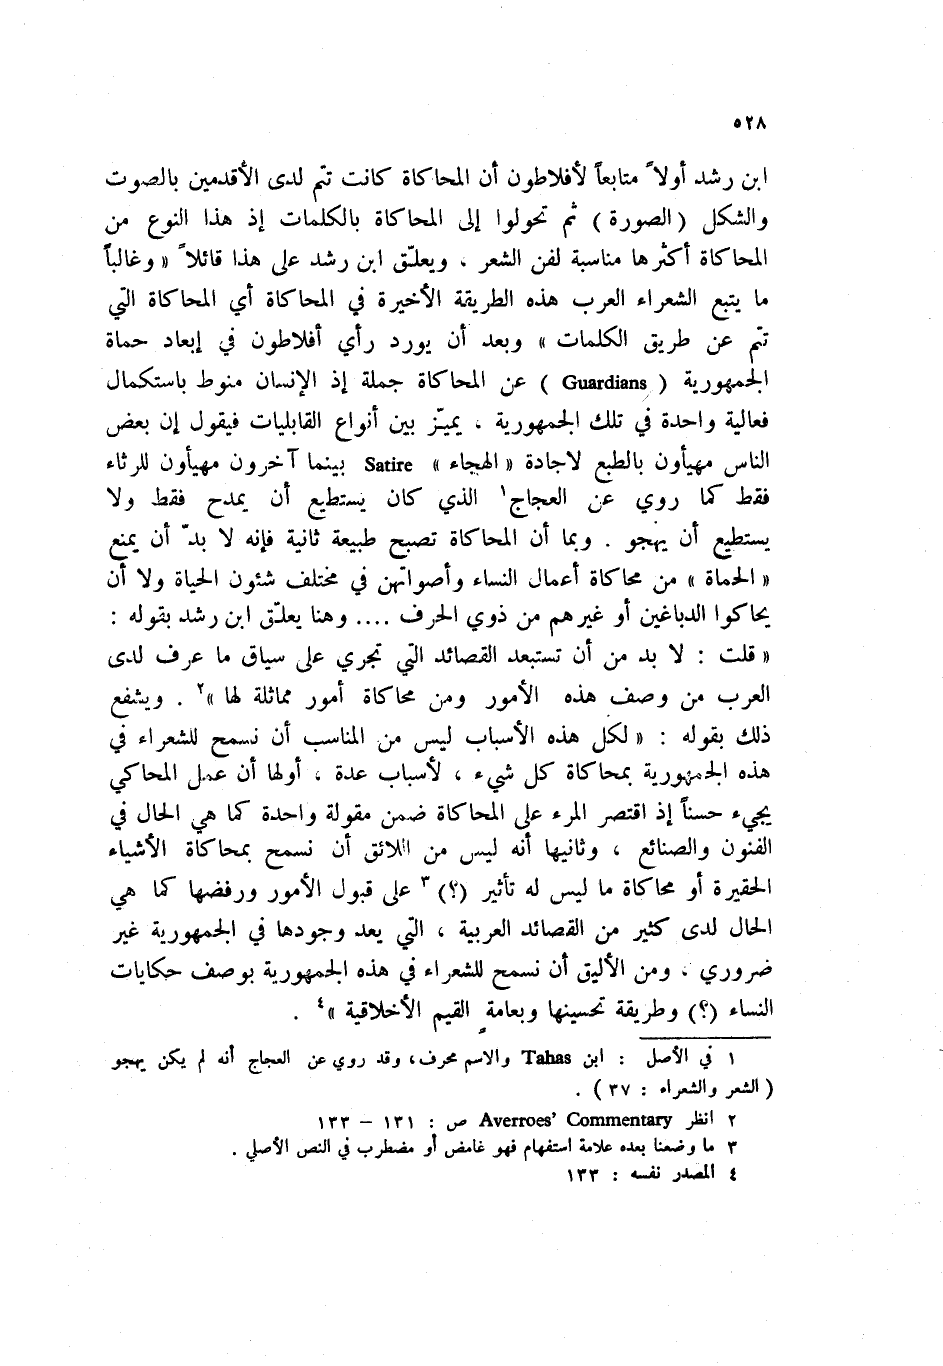 ٥٢٨
ابن رشد أولاً متابعاً لأفلاطون أن المحاكاة كانت تتم لدى الأقدمين بالصوت
والشكل (الصورة) ثم تحولوا إلى المحاكاة بالكلمات إذ هذا النوع من
المحاكاة أكثرها مناسبة لفن الشعر ، ويعلّق ابن رشد على هذا قائلاً « وغالباً
ما يتبع الشعراء العرب هذه الطريقة الأخيرة في المحاكاة أي المحاكاة التي
تتم عن طريق الكلمات » وبعد أن يورد رأي أفلاطون في إبعاد حماة
الجمهورية ( Guardians ) عن المحاكاة جملة إذ الإنسان منوط باستكمال
فعالية واحدة في تلك الجمهورية ، يميّز بين أنواع القابليات فيقول إن بعض
الناس مهيأون بالطبع لاجادة « الهجاء » Satire بينما آخرون مهيأون للرثاء
فقط كما روي عن العجاج١ الذي كان يستطيع أن يمدح فقط ولا
يستطيع أن يهجو . وبما أن المحاكاة تصبح طبيعة ثانية فإنه لا بدّ أن يمنع
« الحماة » من محاكاة أعمال النساء وأصواتهن في مختلف شئون الحياة ولا أن
يحاكوا الدباغين أو غيرهم من ذوي الحرف .... وهنا يعلّق ابن رشد بقوله :
« قلت : لا بد من أن تستبعد القصائد التي تجري على سياق ما عرف لدى
العرب من وصف هذه الأمور ومن محاكاة أمور مماثلة لها »٢ . ويشفع
ذلك بقوله : « لكل هذه الأسباب ليس من المناسب أن نسمح للشعراء في
هذه الجمهورية بمحاكاة كل شيء ، لأسباب عدة ، أولها أن عمل المحاكي
يجيء حسناً إذ اقتصر المرء على المحاكاة ضمن مقولة واحدة كما هي الحال في
الفنون والصنائع ، وثانيها أنه ليس من اللائق أن نسمح بمحاكاة الأشياء
الحقيرة أو محاكاة ما ليس له تأثير (؟)٣ على قبول الأمور ورفضها كما هي
الحال لدى كثير من القصائد العربية ، التي يعد وجودها في الجمهورية غير
ضروري ، ومن الأليق أن نسمح للشعراء في هذه الجمهورية بوصف حكايات
النساء (؟) وطريقة تحسينها وبعامةٍ القيم الأخلاقية »٤ .
١ في الأصل : ابن Tahas والاسم محرف، وقد روي عن العجاج أنه لم يكن يهجو
( الشعر والشعراء : ٣٧ ) .
٢ انظر Averroes' Commentary ص : ١٣١ – ١٣٣
٣ ما وضعنا بعده علامة استفهام فهو غامض أو مضطرب في النص الأصلي .
٤ المصدر نفسه : ١٣٣